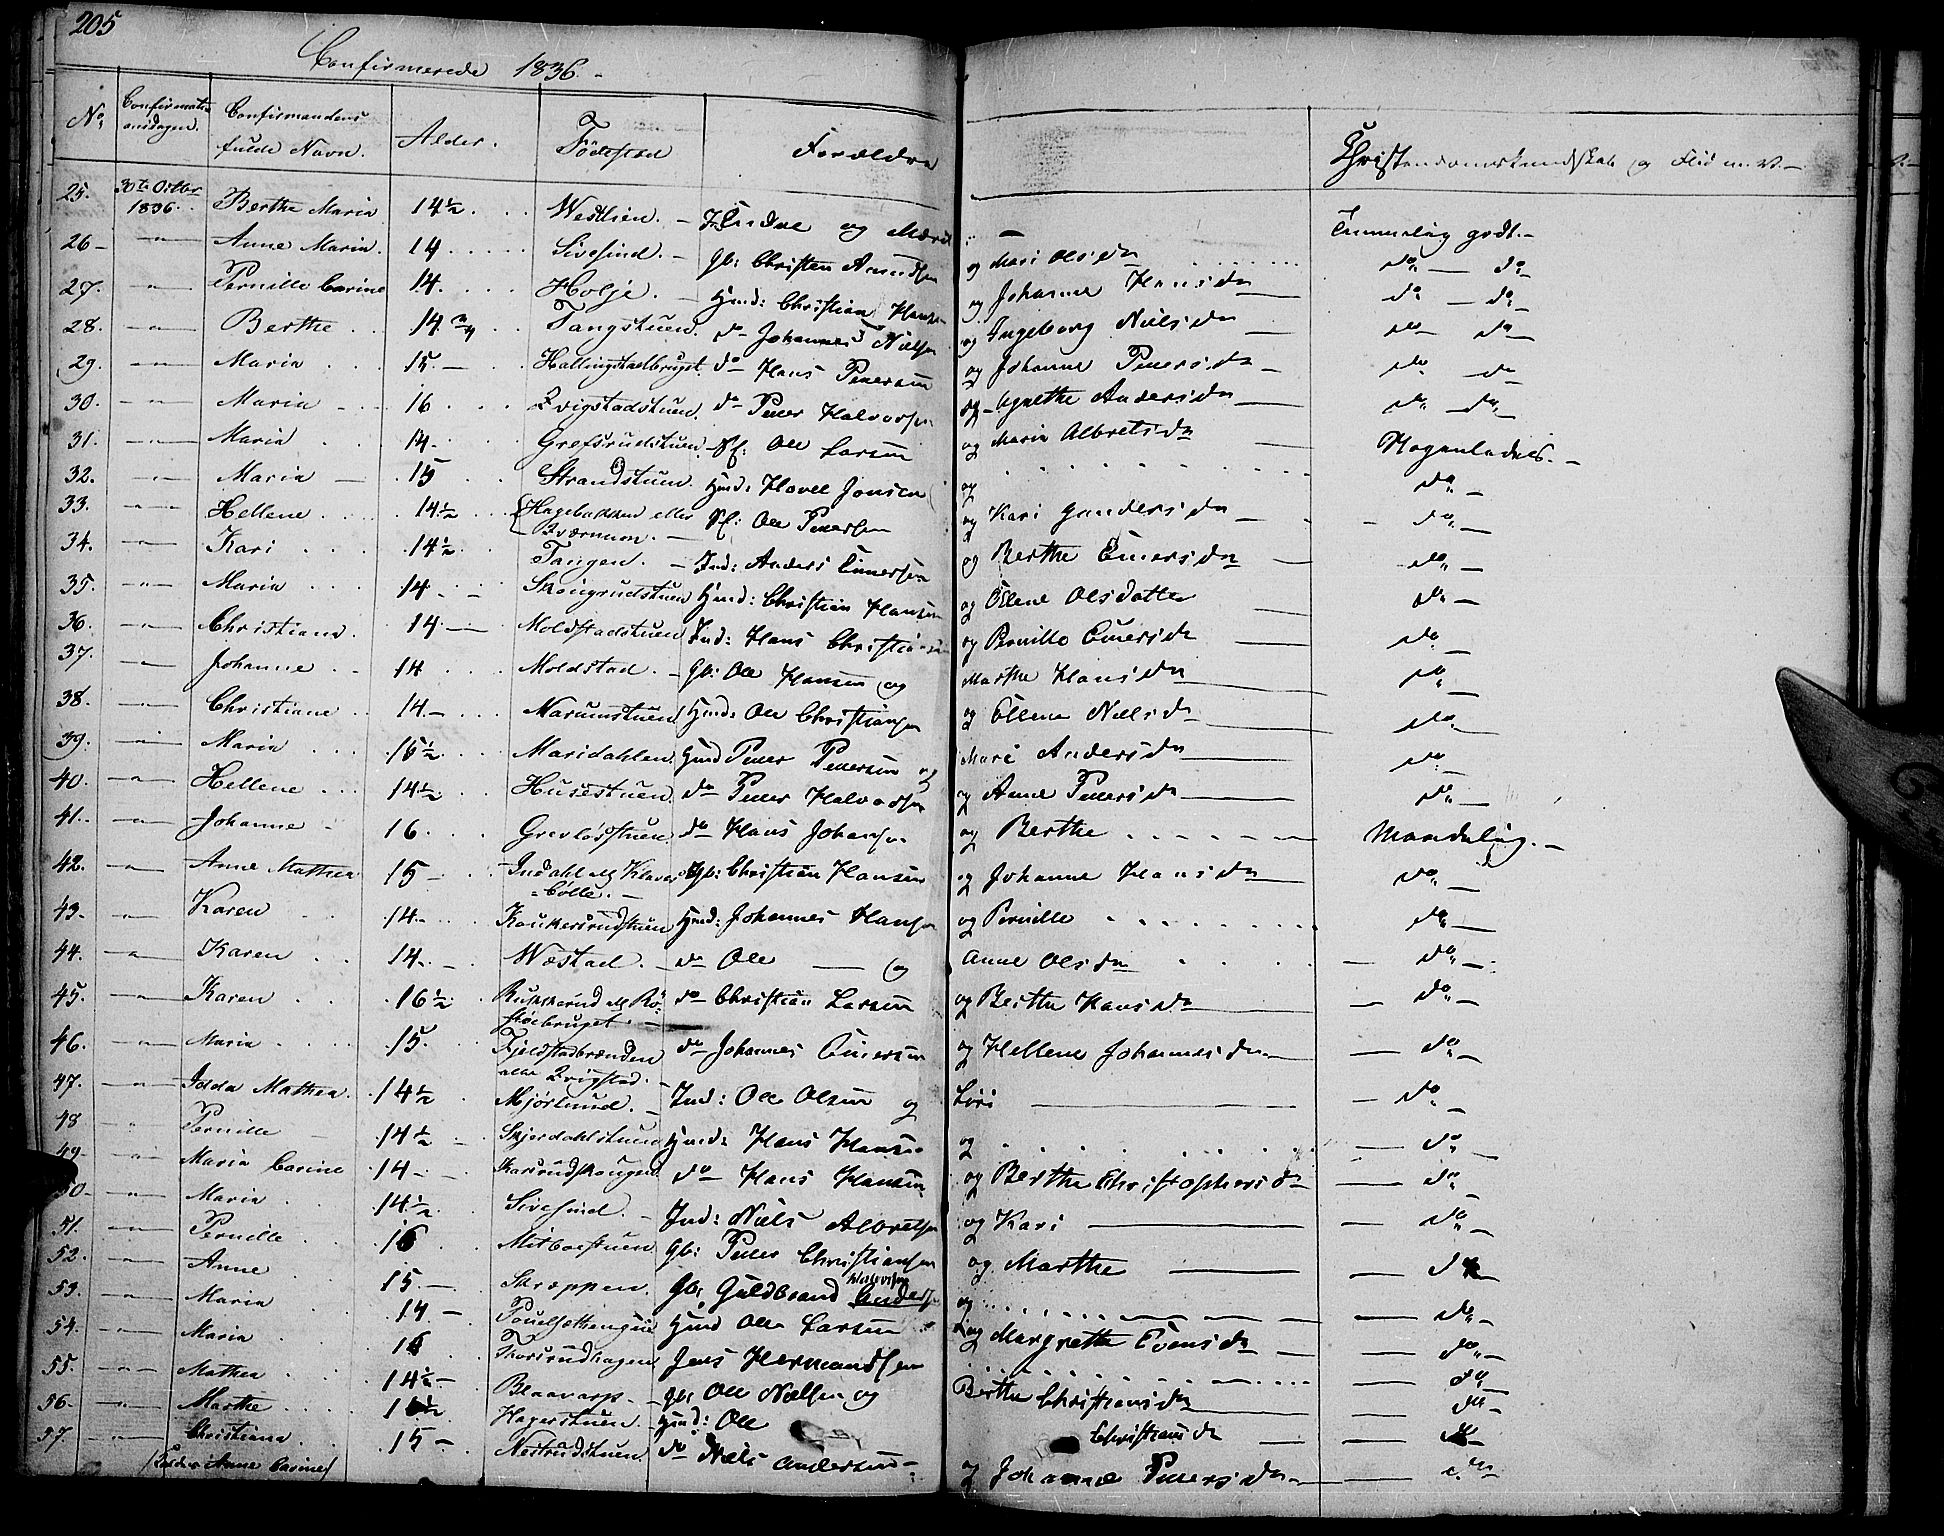 205
Confirmerede 1836.
No. Confirmationsdagen. Confirmandens fulde Navn. Alder. Födested Forældre Christendomskundskab og Flid m. v.
25. 30te Octbr 1836. Berthe Maria 14½ Westlien. og Temmelig godt.
26 Anne Maria. 14 Sivesind. Gb: Christen Amundsen og Mari Olsdr do do
27. Pernille Carine 14. Holje. Hmd: Christian Hansen og Johanne Hansdr do do
28. Berthe 14¾ Tangstuen. do Johannes Nielsen og Ingeborg Nielsdr do do
29. Maria 15 Hallingstadbruget. do Hans Pedersen og Johanne Pedersdr do do
30. Maria 16 Qvigstadstuen do Peder Halvorsen og Agnethe Andersdr do do
31. Maria 14 Grefsrudstuen Sf: Ole Larsen og Maria Albretsdr Nogenledes.
32. Maria 15 Strandstuen Hmd: Hovel Jonsen og do
33. Hellene 14½ Hagebakken eller Bværnum. Sf: Ole Pedersen og Kari Gundersdr do
34. Kari 14½ Tangen. Ind: Anders Einersen og Berthe Einersdr do
35. Maria 14 Skougrudstuen Hmd: Christian Hansen og Ellene Olsdatter do
36. Christiana. 14 Moldstadstuen Ind: Hans Christiansen og Pernille Einersdr do
37. Johanne 14 Moldstad. Gb: Ole Hansen og Marthe Hansdr do
38. Christiane 14 Narumstuen Hmd: Ole Christiansen og Ellene Nielsdr do
39. Maria 15½ Maridahlen Hmd Peder Pedersen og Mari Andersdr do
40. Hellene 14½ Husestuen do Peder Halvorsen og Anne Pedersdr do
41. Johanne 16 Grevlösstuen do Hans Johansen og Berthe Maadelig.
42. Anne Mathea 15 Gb: Christian Hansen og Johanne Hansdr do
43. Karen 14 Koukersrudstuen Hmd: Johannes Hansen og Pernille do
44. Karen 14 Wæstad. do Ole og Anne Olsdr do
45. Karen 16½ do Christian Larsen og Berthe Hansdr do
46. Maria 15. Fjeldstadbraaden eller Qvigstad. do Johannes Einersen og Hellene Johannesdr do
47. Idda Mathea. 14½ Mjörlund. Ind: Ole Olsen og Lisi do
48 Pernille 14½ Skjerdahlstuen Hmd: Hans Hansen og do
49 Maria Carine 14 Karsrudskougen do Hans Hansen og Berthe Christophersdr do
50 Maria 14½ Sivesind. Ind: Niels Albretsen og Kari do
51. Pernille 16 Mitboestuen Gb: Peder Christiansen og Marthe do
52. Anne 15 Skræppen. Gb: Guldbrand Andersen og do
53. Maria 14 Hmd Ole Larsen og Margrethe Evensdr do
54. Maria 16 Thorsrudhagen Jens Hermandsen do
55. Mathea 14½ Blaavarp Gb: Ole Nielsen og Berthe Christiansdr do
56. Marthe Hagerstuen Hmd: Ole Christiansdr do
57. Christiana 15 Nesrudstuen. do Niels Andersen og Johanne Pedersdr do
Anne Carine